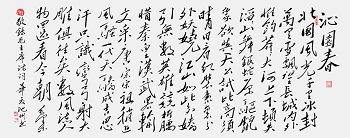 沁园春
北国风光千里冰封
万里雪飘望长城内外
惟余莽莽大河上下顿失
滔滔山舞银蛇原驰蜡
象欲与天公试比高须
晴日看红装素裹分
外妖娆江山如此多
娇引无数英雄竞折腰
惜秦皇汉武略输
文采唐宗宋祖稍逊
风骚一代天骄成吉思
汗只识弯弓射大
雕俱往矣数风流人
物还看今朝
敬录毛主席诗词